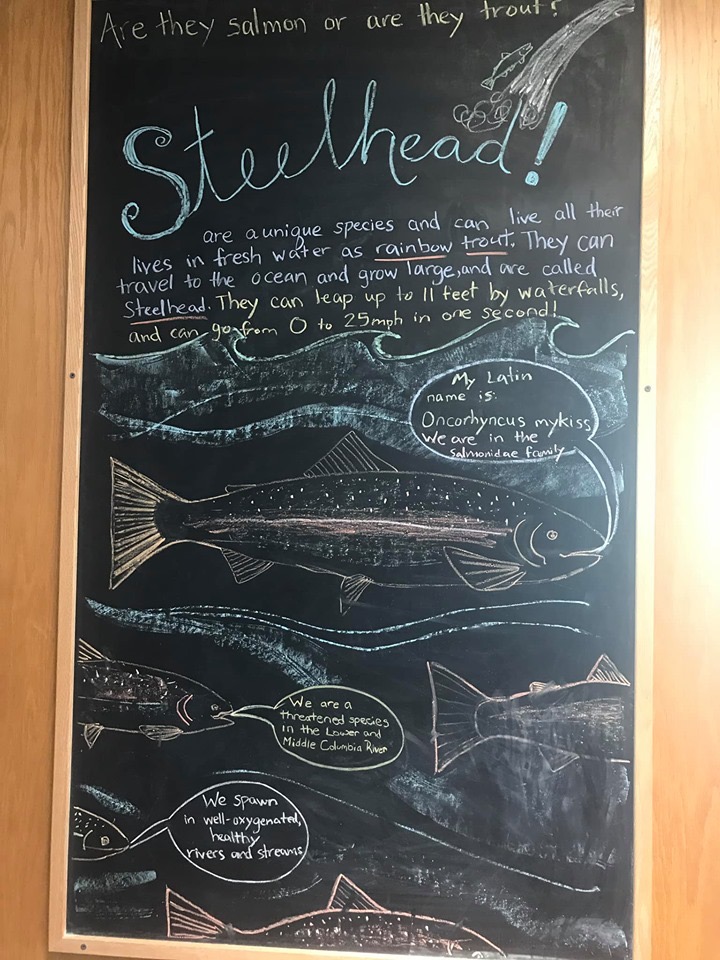 Are they salmon or are they trout?
Steelhead!
are a unique species and can live all their
lives in fresh water as rainbow trout. They can
travel to the ocean and grow large, and are called
Steelhead. They can leap up to 11 feet by waterfalls,
and can go from 0 to 25mph in one second!
My Latin
name is:
Oncorhyncus mykiss
We are in the
Salmonidae family
We are a
threatened species
in the Lower and
Middle Columbia River
We spawn
in well-oxygenated,
healthy
rivers and streams